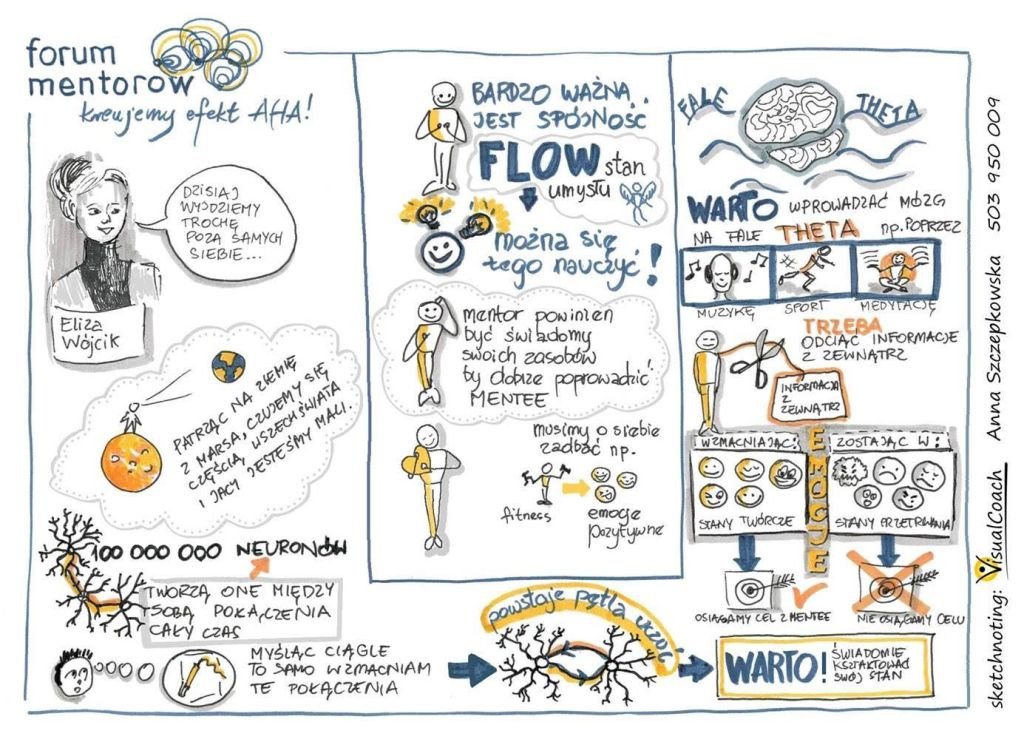 forum
mentorów
kreujemy efekt AHA!
DZISIAJ
WYJDZIEMY
TROCHĘ
POZA SAMYCH
SIEBIE...
Eliza
Wójcik
PATRZĄC NA ZIEMIĘ
Z MARSA, CZUJEMY SIĘ
CZĘŚCIĄ WSZECHŚWIATA
I JACY JESTEŚMY MALI.
100 000 000 NEURONÓW
TWORZĄ ONE MIĘDZY
SOBĄ POŁĄCZENIA
CAŁY CZAS
MYŚLĄC CIĄGLE
TO SAMO WZMACNIAM
TE POŁĄCZENIA
BARDZO WAŻNA
JEST SPÓJNOŚĆ
FLOW stan
umysłu
można się
tego nauczyć!
mentor powinien
być świadomy
swoich zasobów
by dobrze poprowadzić
MENTEE
musimy o siebie
zadbać np.
fitness
emocje
pozytywne
powstaje pętla uczuć
FALE THETA
WARTO WPROWADZAĆ MÓZG
NA FALE THETA np. POPRZEZ
MUZYKĘ SPORT MEDYTACJĘ
TRZEBA
ODCIĄĆ INFORMACJE
Z ZEWNĄTRZ
INFORMACJA
Z
ZEWNĄTRZ
EMOCJE
WZMACNIAJĄC:
STANY TWÓRCZE
OSIĄGAMY CEL Z MENTEE
ZOSTAJĄC W:
STANY PRZETRWANIA
NIE OSIĄGAMY CELU
WARTO! ŚWIADOMIE
KSZTAŁTOWAĆ
SWÓJ STAN
sketchnoting: VisualCoach Anna Szczepkowska 503 950 009